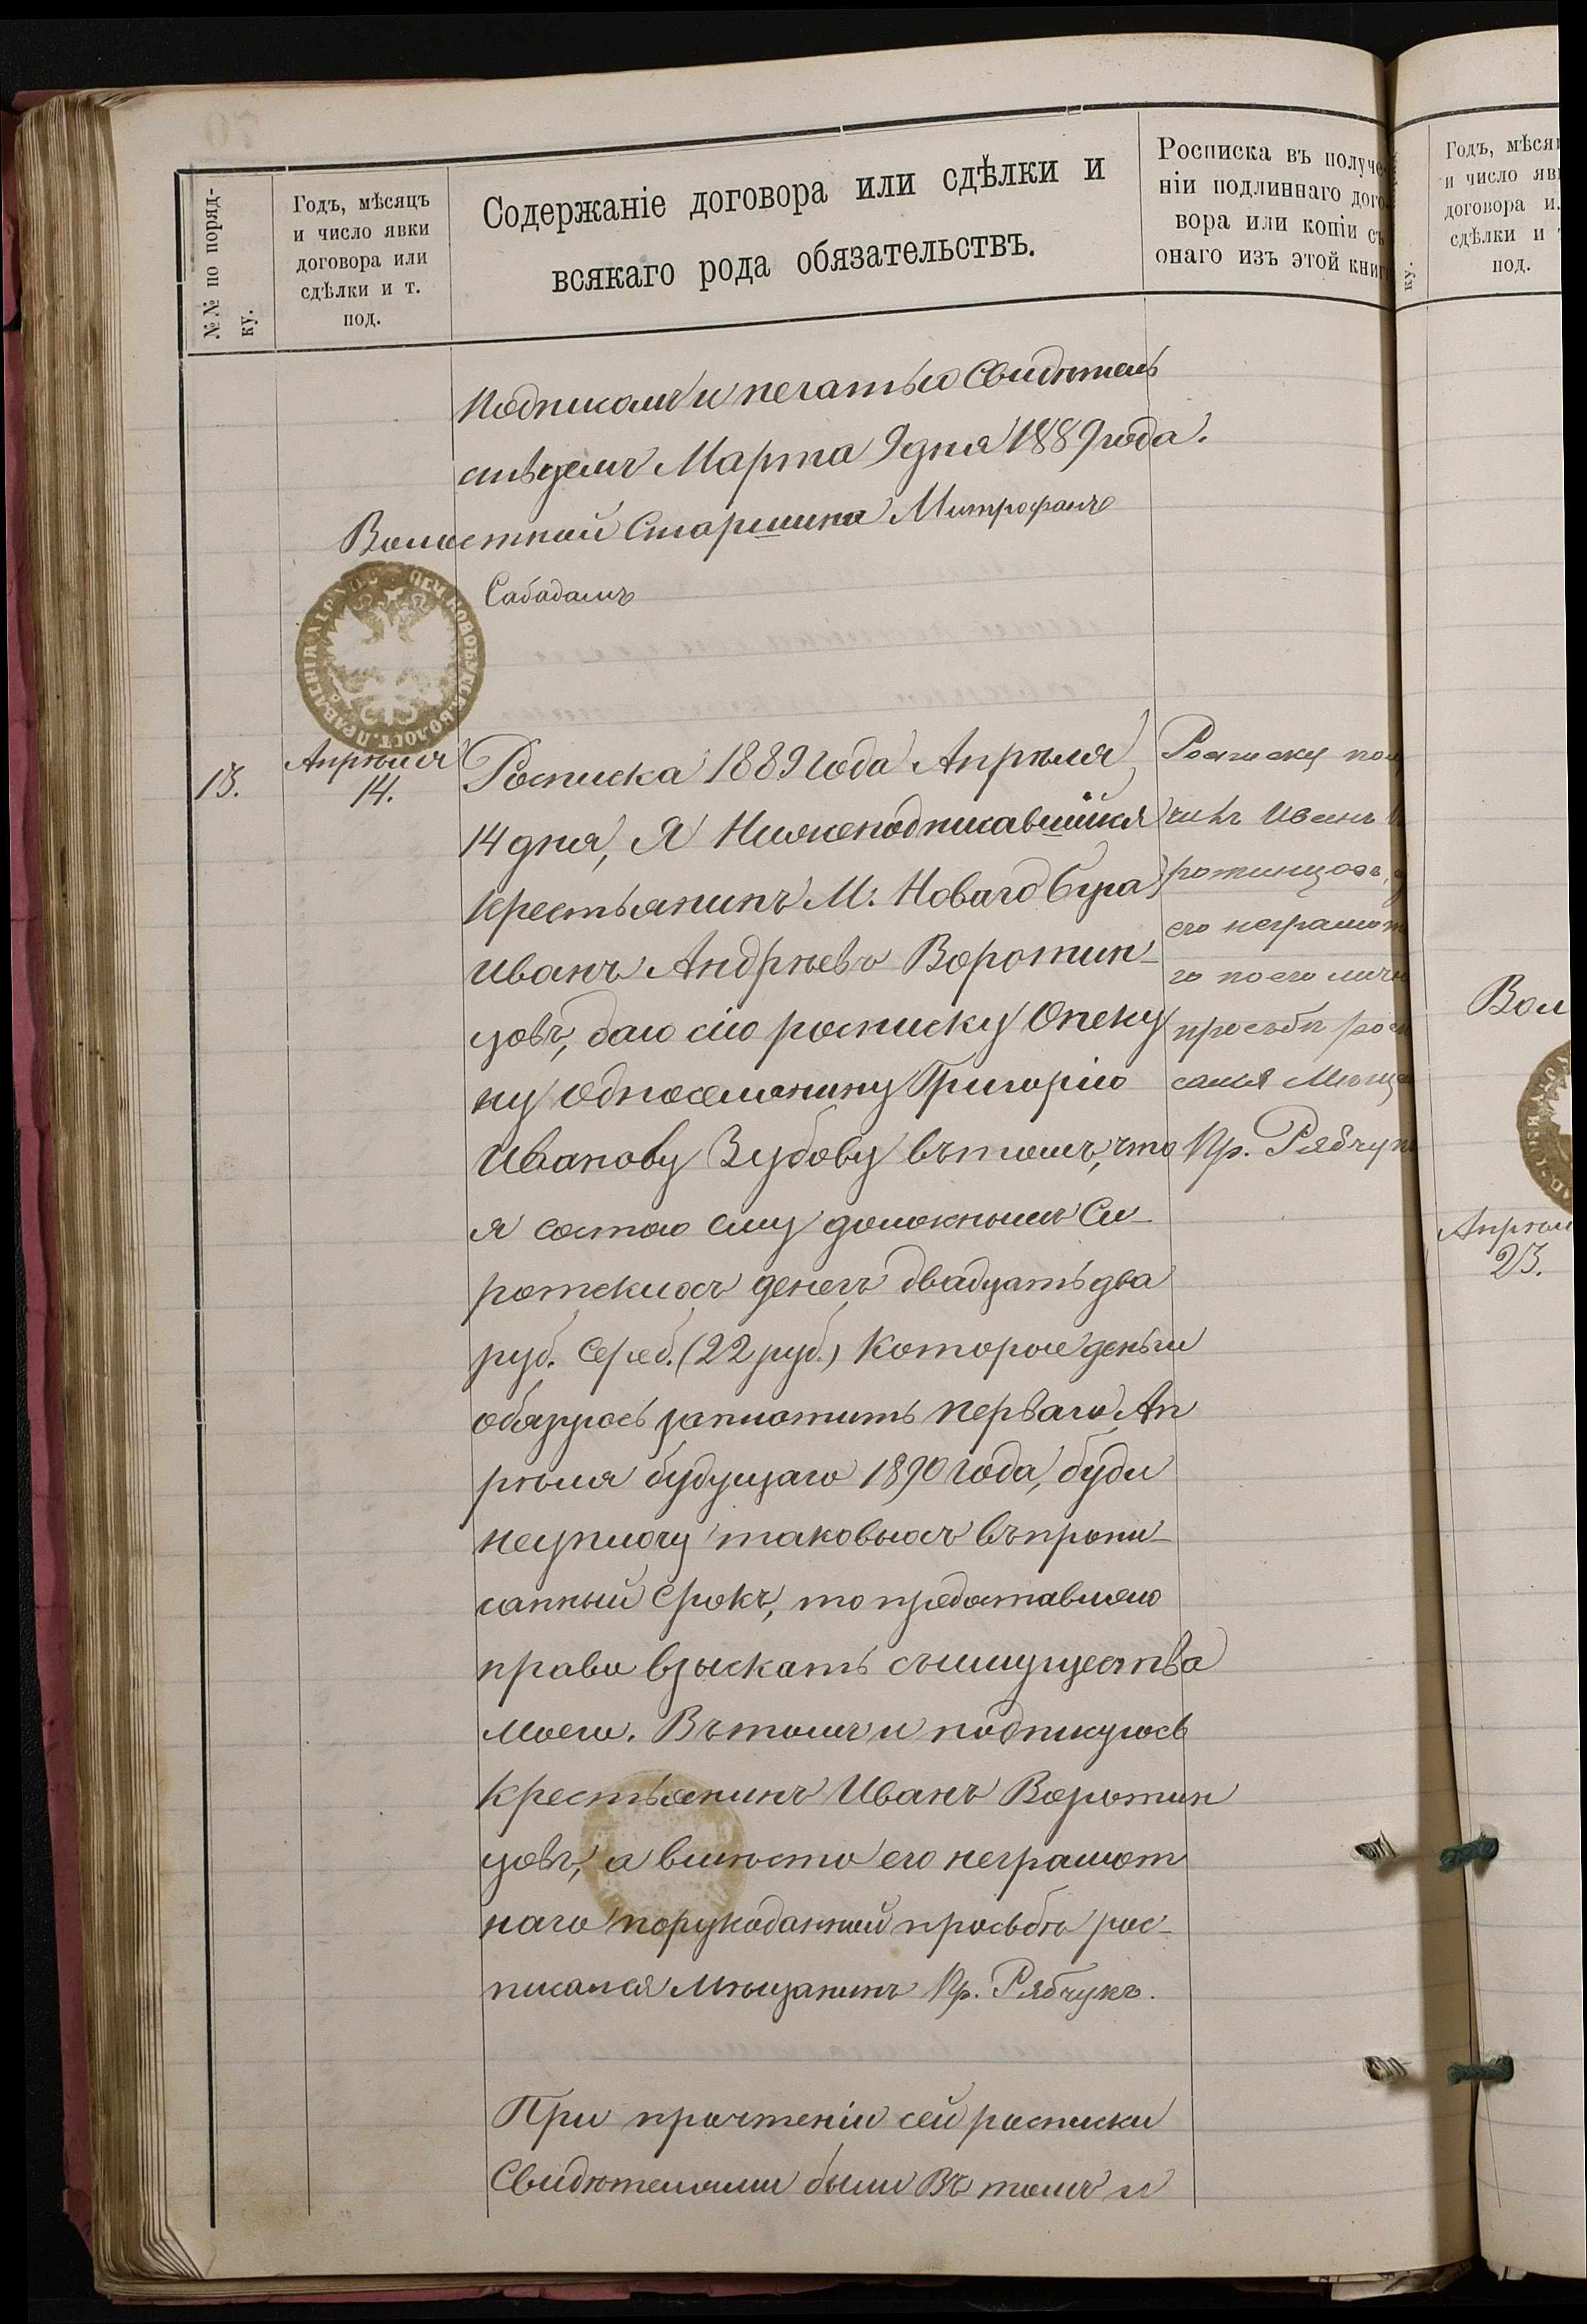 №№ по поряд-
ку.
Годъ, мѣсяцъ
и число явки
договора или
сдѣлки и т.
под.
Содержаніе договора или сдѣлки и
всякаго рода обязательствъ.
Росписка въ получе
ніи подлиннаго дого
вора или копіи съ
онаго изъ этой книг
подписомъ и печатью свидѣтель
ствуемъ Марта 9 дня 1889 года.
Волостной Старшина Митрофанъ
Сабадашъ
13.
Апрѣля
14.
Росписка 1889 года Апрѣля
14 дня, Я Нижеподписавшійся
крестьянинъ М. Новаго Буга
Иванъ Андрѣевъ Воротин-
цовъ, даю сію росписку Опеку
ну односелянину Григорію
Иванову Зубову въ томъ, что
я состою ему должнымъ Си-
ротскихъ денегъ двадцать два
руб. сереб. (22 руб.) которые деньги
обязуюсь заплотить перваго Ап
рѣля будущаго 1890 года, буди
неуплочу таковыхъ въ пропи-
санный срокъ, то предоставляю
право взыскать съ имущества
моего. Въ томъ и подписуюсь
крестьянинъ Иванъ Воротин
цовъ, а вмѣсто его неграмот
наго порукоданной прозьбѣ рос-
писался Мѣщанинъ Пр. Рябчукъ.
При прочтеніи сей росписки
Свидѣтелями были въ томъ и
Росписку пол
чилъ Иванъ В
ротинцовъ, а
его неграмот
го по его личн
просьбѣ росп
сался Мѣща
Пр. Рябчукъ
Годъ, мѣсяц
и число яв
договора и
сдѣлки и т
под.
ку.
Вол
Апрѣл
23.